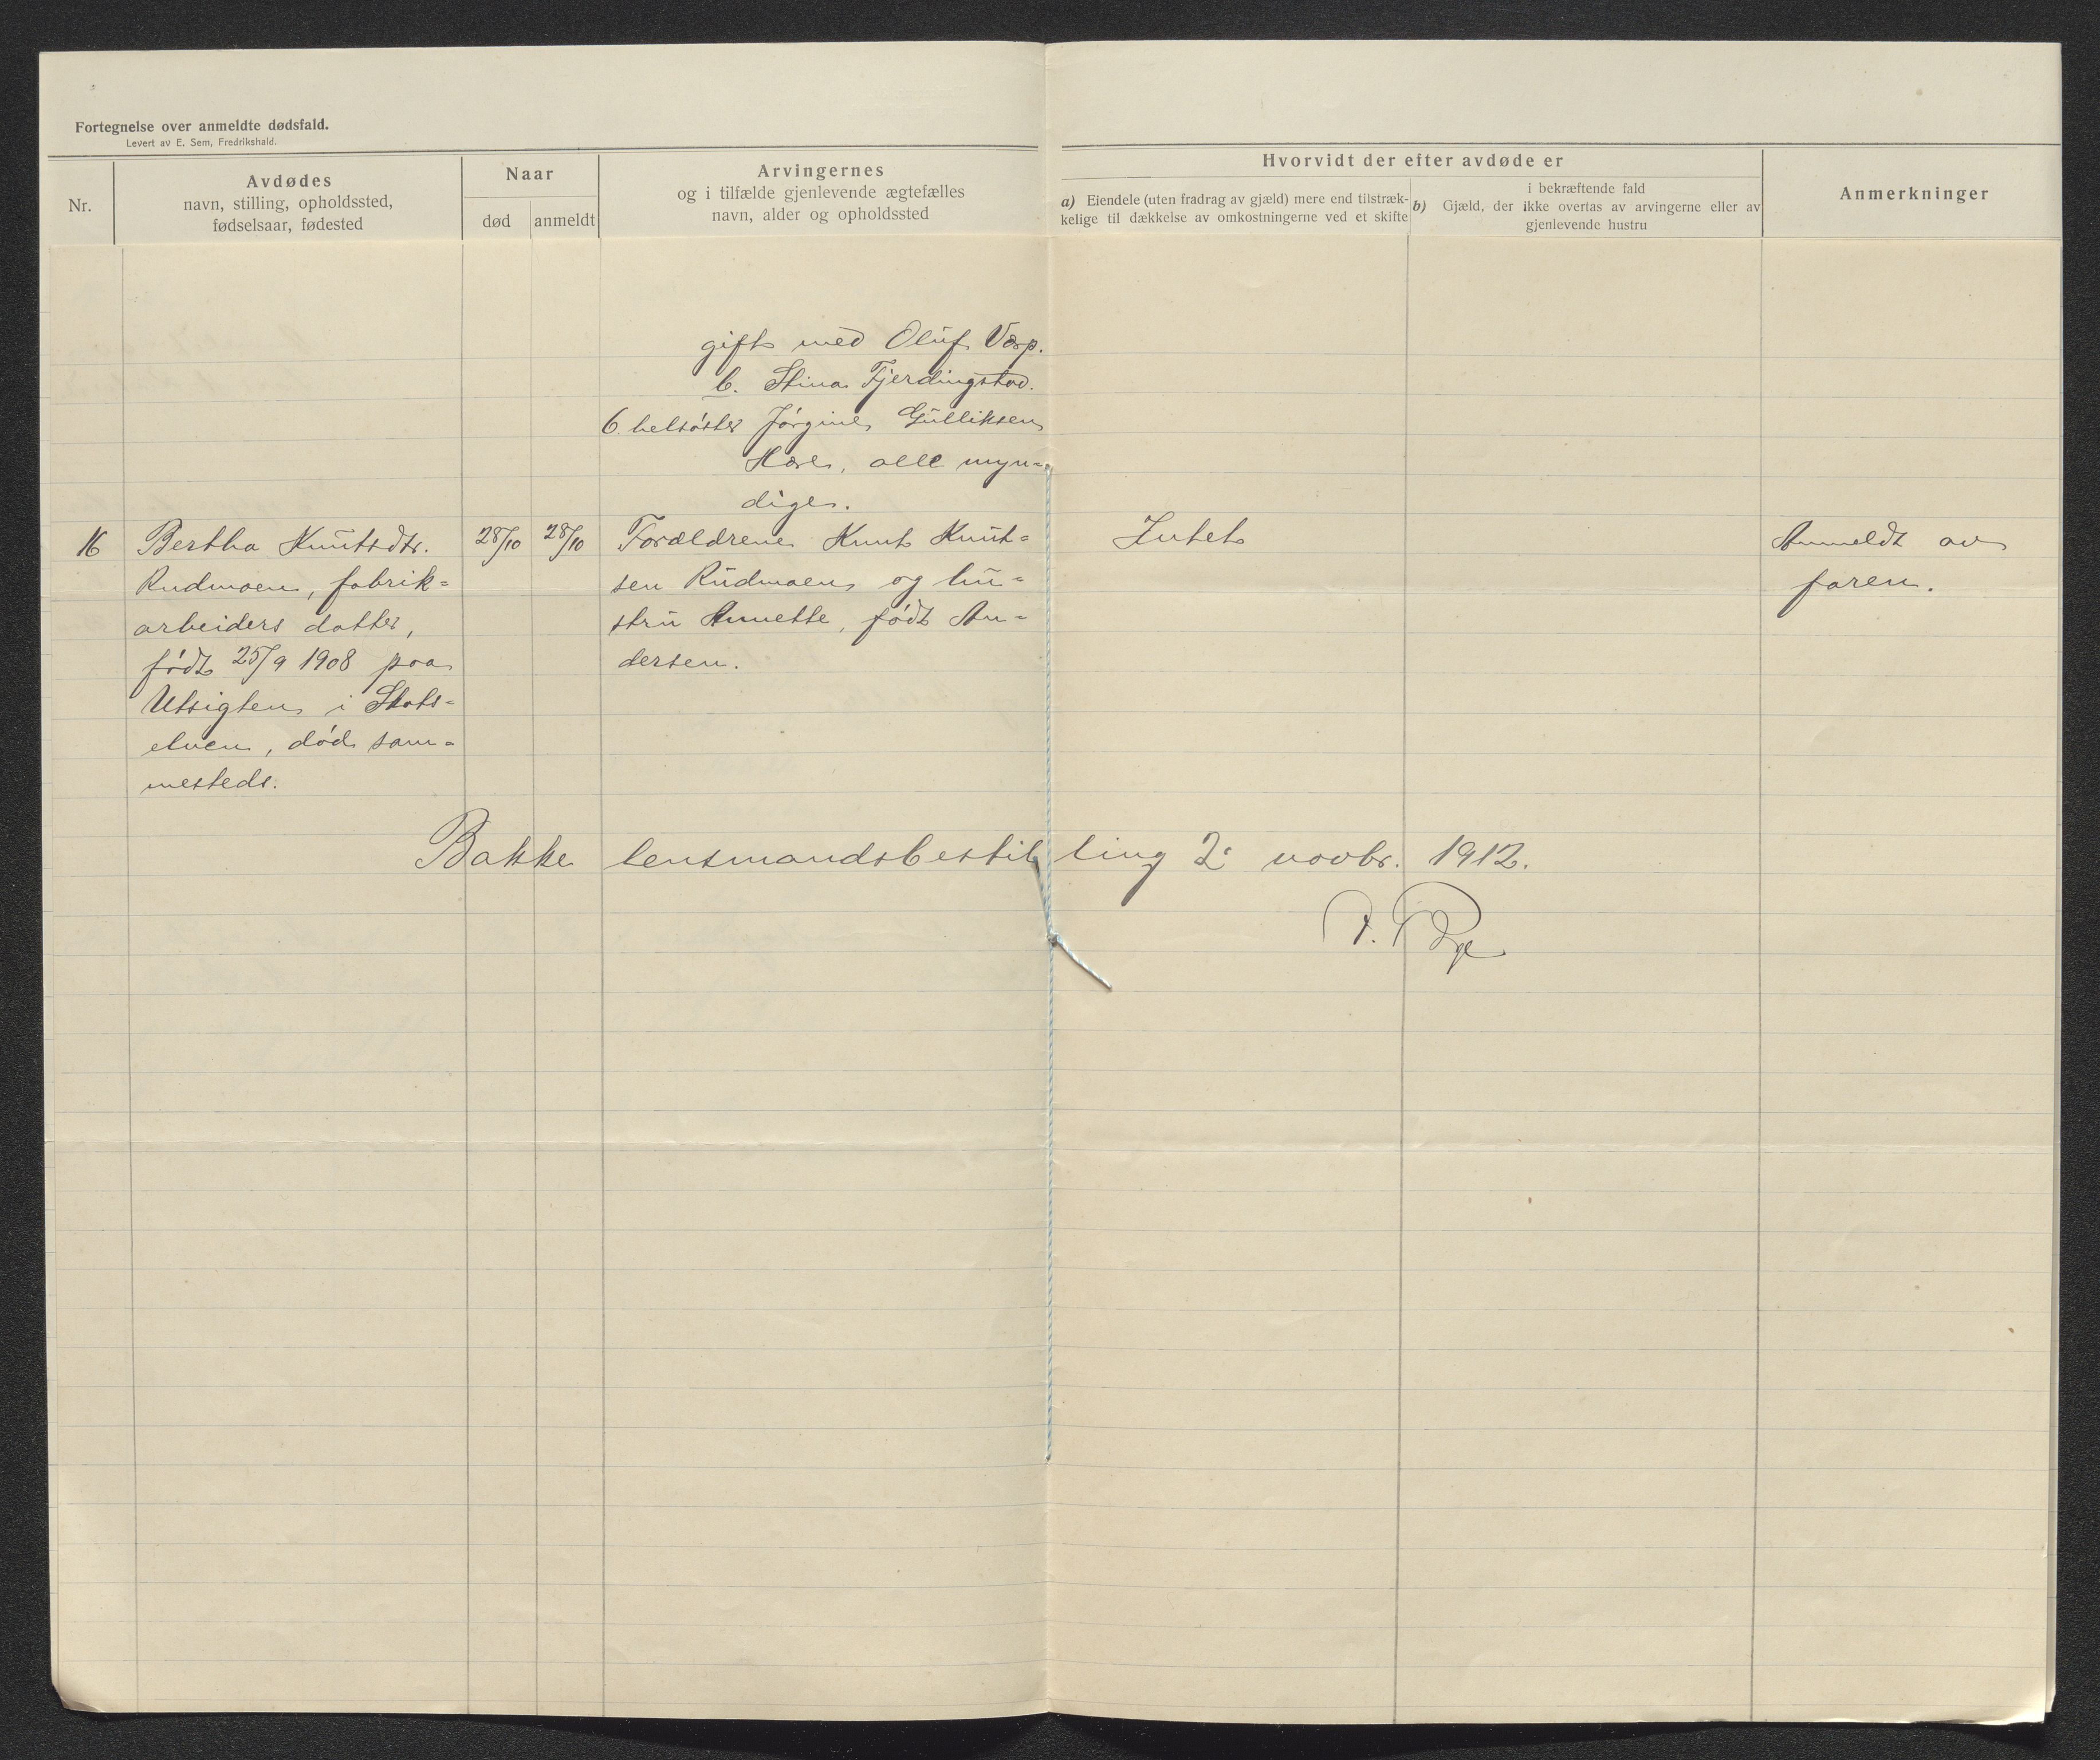 Fortegnelse over anmeldte dødsfald.
Levert av E. Sem, Fredrikshald.
Nr.
Avdødes
navn, stilling, opholdssted,
fødselsaar, fødested
Naar
død
anmeldt
Arvingernes
og i tilfælde gjenlevende ægtefælles
navn, alder og opholdssted
Hvorvidt der efter avdøde er
a) Eiendele (uten fradrag av gjæld) mere end tilstræk-
kelige til dækkelse av omkostningerne ved et skifte
i bekræftende fald
b) Gjæld, der ikke overtas av arvingerne eller av
gjenlevende hustru
Anmerkninger
gift med Oluf
b. Stina Fjerdingstad.
6. helsøster Jørgine Gulliksen
alle myn-
dige.
16
Bertha Knutsdtr.
Rudmoen, fabrik-
arbeiders datter,
født 25/9 1908 paa
Utsigten i Skots-
elven, død sam-
mesteds.
28/10
28/10
Forældrene Knut Knut-
sen Rudmoen og hu-
stru Annette, født An-
dersen.
Intet
Anmeldt av
faren.
Bakke lensmandsbestilling 2. novbr. 1912.